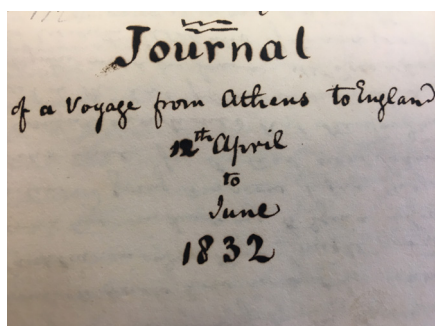 Journal
of a Voyage from Athens to England
12th April
to
June
1832